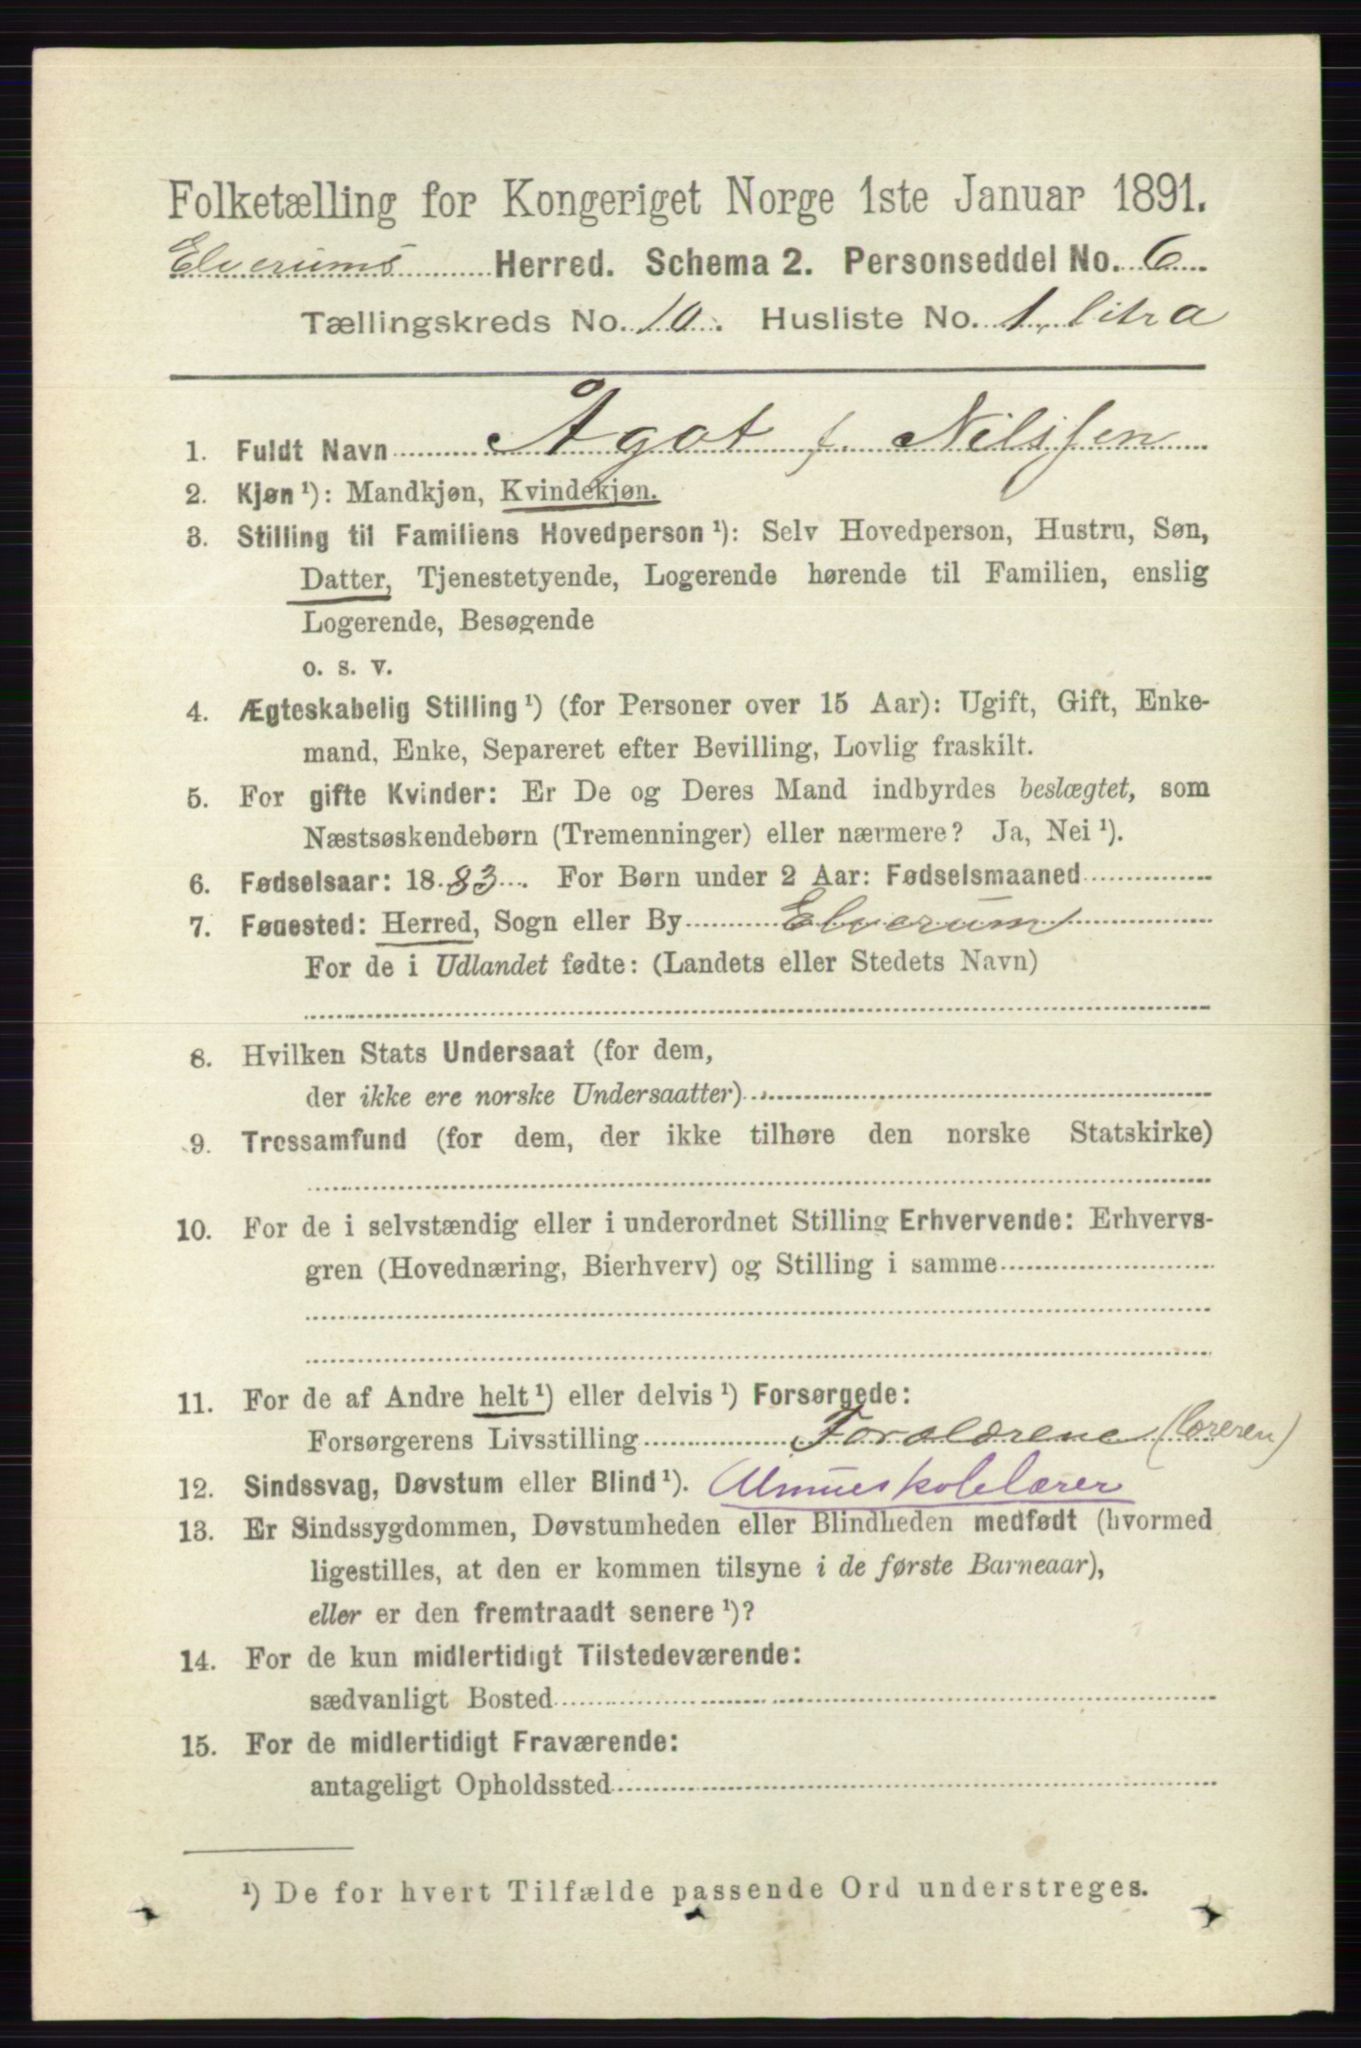 Folketælling for Kongeriget Norge 1ste Januar 1891.
Elverums Herred. Schema 2. Personseddel No. 6
Tællingskreds No. 10. Husliste No. 1, litra
1. Fuldt Navn Agot f. Nilssen
2. Kjøn ¹): Mandkjøn, Kvindekjøn.
3. Stilling til Familiens Hovedperson ¹): Selv Hovedperson, Hustru, Søn,
Datter, Tjenestetyende, Logerende hørende til Familien, enslig
Logerende, Besøgende
o. s. v.
4. Ægteskabelig Stilling ¹) (for Personer over 15 Aar): Ugift, Gift, Enke-
mand, Enke, Separeret efter Bevilling, Lovlig fraskilt.
5. For gifte Kvinder: Er De og Deres Mand indbyrdes beslægtet, som
Næstsøskendebørn (Tremenninger) eller nærmere? Ja, Nei ¹).
6. Fødselsaar: 1883. For Børn under 2 Aar: Fødselsmaaned
7. Føuested: Herred, Sogn eller By Elverum
For de i Udlandet fødte: (Landets eller Stedets Navn)
8. Hvilken Stats Undersaat (for dem,
der ikke ere norske Undersaatter)
9. Trossamfund (for dem, der ikke tilhøre den norske Statskirke)
10. For de i selvstændig eller i underordnet Stilling Erhvervende: Erhvervs-
gren (Hovednæring, Bierhverv) og Stilling i samme
11. For de af Andre helt ¹) eller delvis ¹) Forsørgede:
Forsørgerens Livsstilling Forældrene (læreren)
12. Sindssvag, Døvstum eller Blind ¹). Almueskolelærer
13. Er Sindssygdommen, Døvstumheden eller Blindheden medfødt (hvormed
ligestilles, at den er kommen tilsyne i de første Barneaar),
eller er den fremtraadt senere ¹)?
14. For de kun midlertidigt Tilstedeværende:
sædvanligt Bosted
15. For de midlertidigt Fraværende:
antageligt Opholdssted
¹) De for hvert Tilfælde passende Ord understreges.